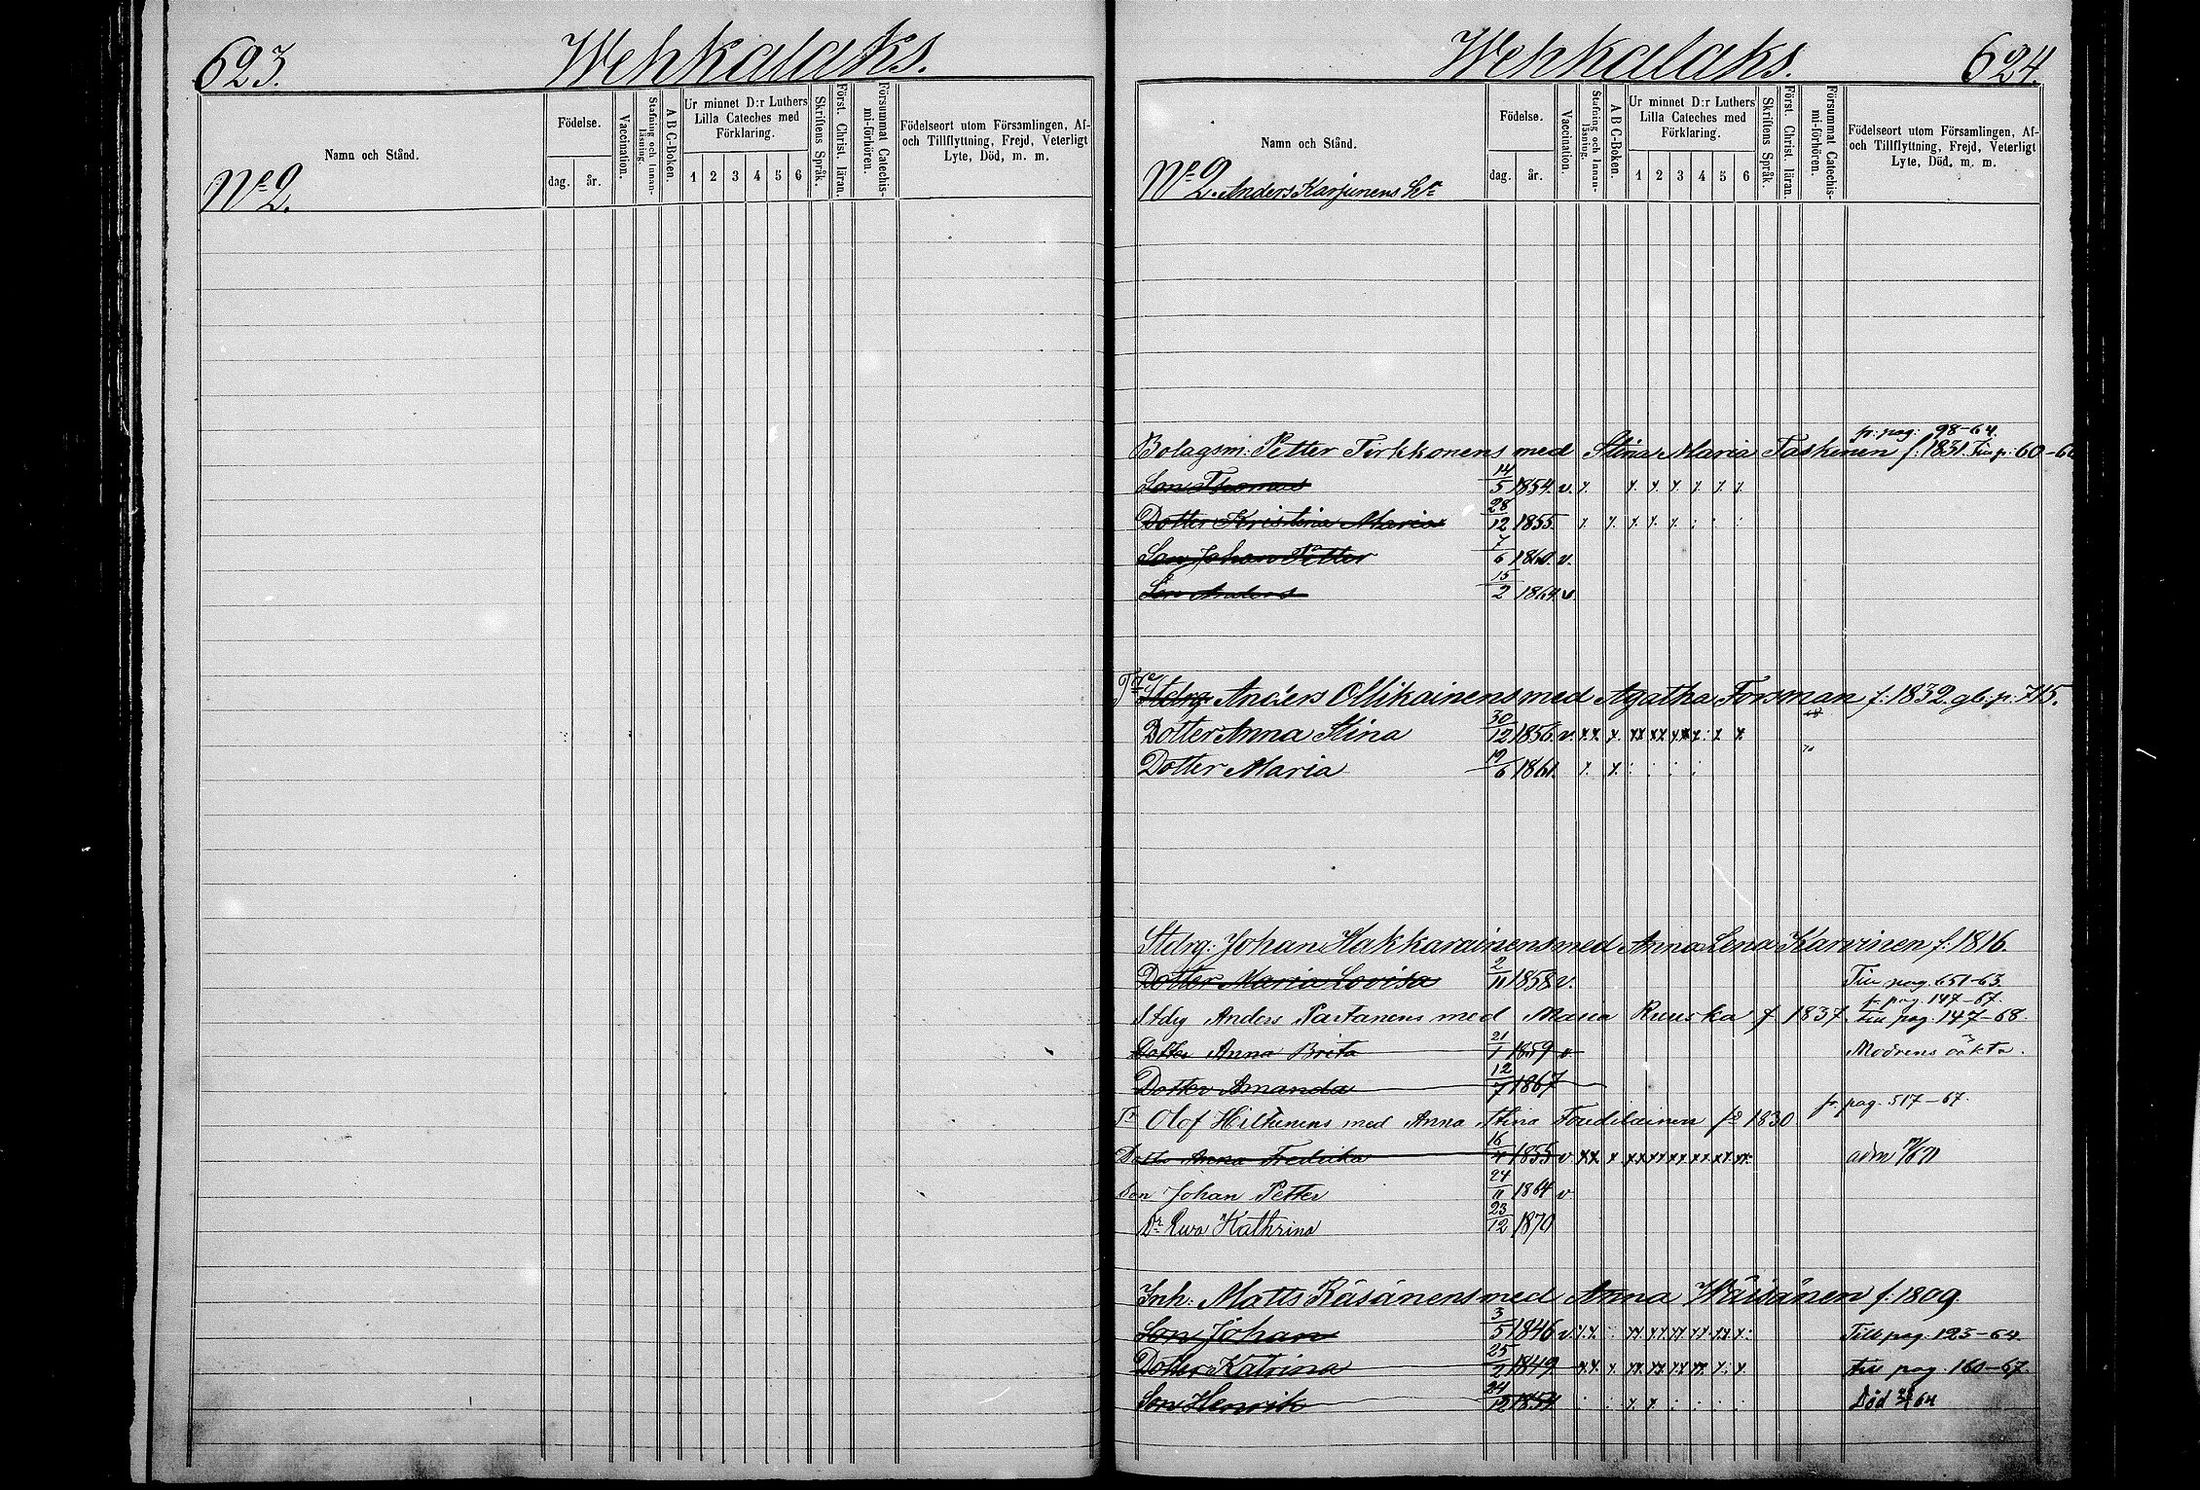 623.
Wehkalaks.
Namn och Stånd.
Födelse.
dag.
år.
Vaccination.
Stafning och Innanläsning.
A B C-Boken.
Ur minnet D:r Luthers
Lilla Cateches med
Förklaring.
1 2 3 4 5 6
Skriftens Språk.
Först. Christ. läran.
Försummat Catechismi-förhören.
Födelseort utom Församlingen, Af-
och Tillflyttning, Frejd, Veterligt
Lyte, Död, m. m.
No 2.
Wehkalaks.
624.
Namn och Stånd.
Födelse.
dag.
år.
Vaccination.
Stafning och Innanläsning.
A B C-Boken.
Ur minnet D:r Luthers
Lilla Cateches med
Förklaring.
1 2 3 4 5 6
Skriftens Språk.
Först. Christ. läran.
Försummat Catechismi-förhören.
Födelseort utom Församlingen, Af-
och Tillflyttning, Frejd, Veterligt
Lyte, Död, m. m.
No 2. Anders Karjunens
fr. pag: 98-64.
Bolagsm: Petter Tirkkonens med Stina Maria Taskinen f. 1831. Till p. 60-6
Son Thomas 14/5 1854. v.
Dotter Kristina Maria 28/12 1855
Son Johan Petter 7/6 1860. v.
Son Anders 15/2 1864 v.
Stdrg Anders Ollikainens med Agatha Forsman f. 1832. gb. p. 715.
Dotter Anna Stina 30/12 1856. v.
Dotter Maria 19/6 1861.
Stdrg: Johan Hakkarainens med Anna Lena Karvinen f. 1816.
Dotter Maria Lovisa 2/11 1858 v. Till pag. 651-63
fr pag. 147-67.
Stdrg Anders Partanens med Maria Ruuska f 1837. till pag. 147-68.
Dotter Anna Brita 21/1 1859 v Modrens oäkta.
Dotter Amanda 12/7 1867
fr. pag. 517-67.
Olof Hiltunens med Anna Stina Toudilainen fd 1830
Dotter Anna Fredrika 16/4 1855 v adm
Son Johan Petter 24/11 1864 v
Dr Ewa Kathrina 23/12 1870
Inh: Matts Räsänens med Anna Wäisänen f. 1809
Son Johan 3/5 1846 v. Till pag. 123-64
Dotter Katrina 25/2 1849 till pag. 160-67.
Son Henrik 24/12 1854 Död 64